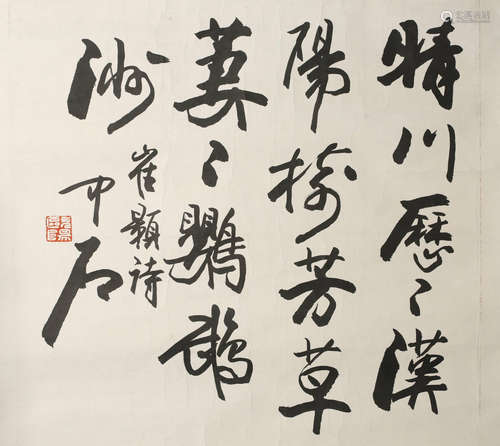 晴川歷〻漢
陽樹芳草
萋〻鸚鵡
洲
崔顥詩
中石